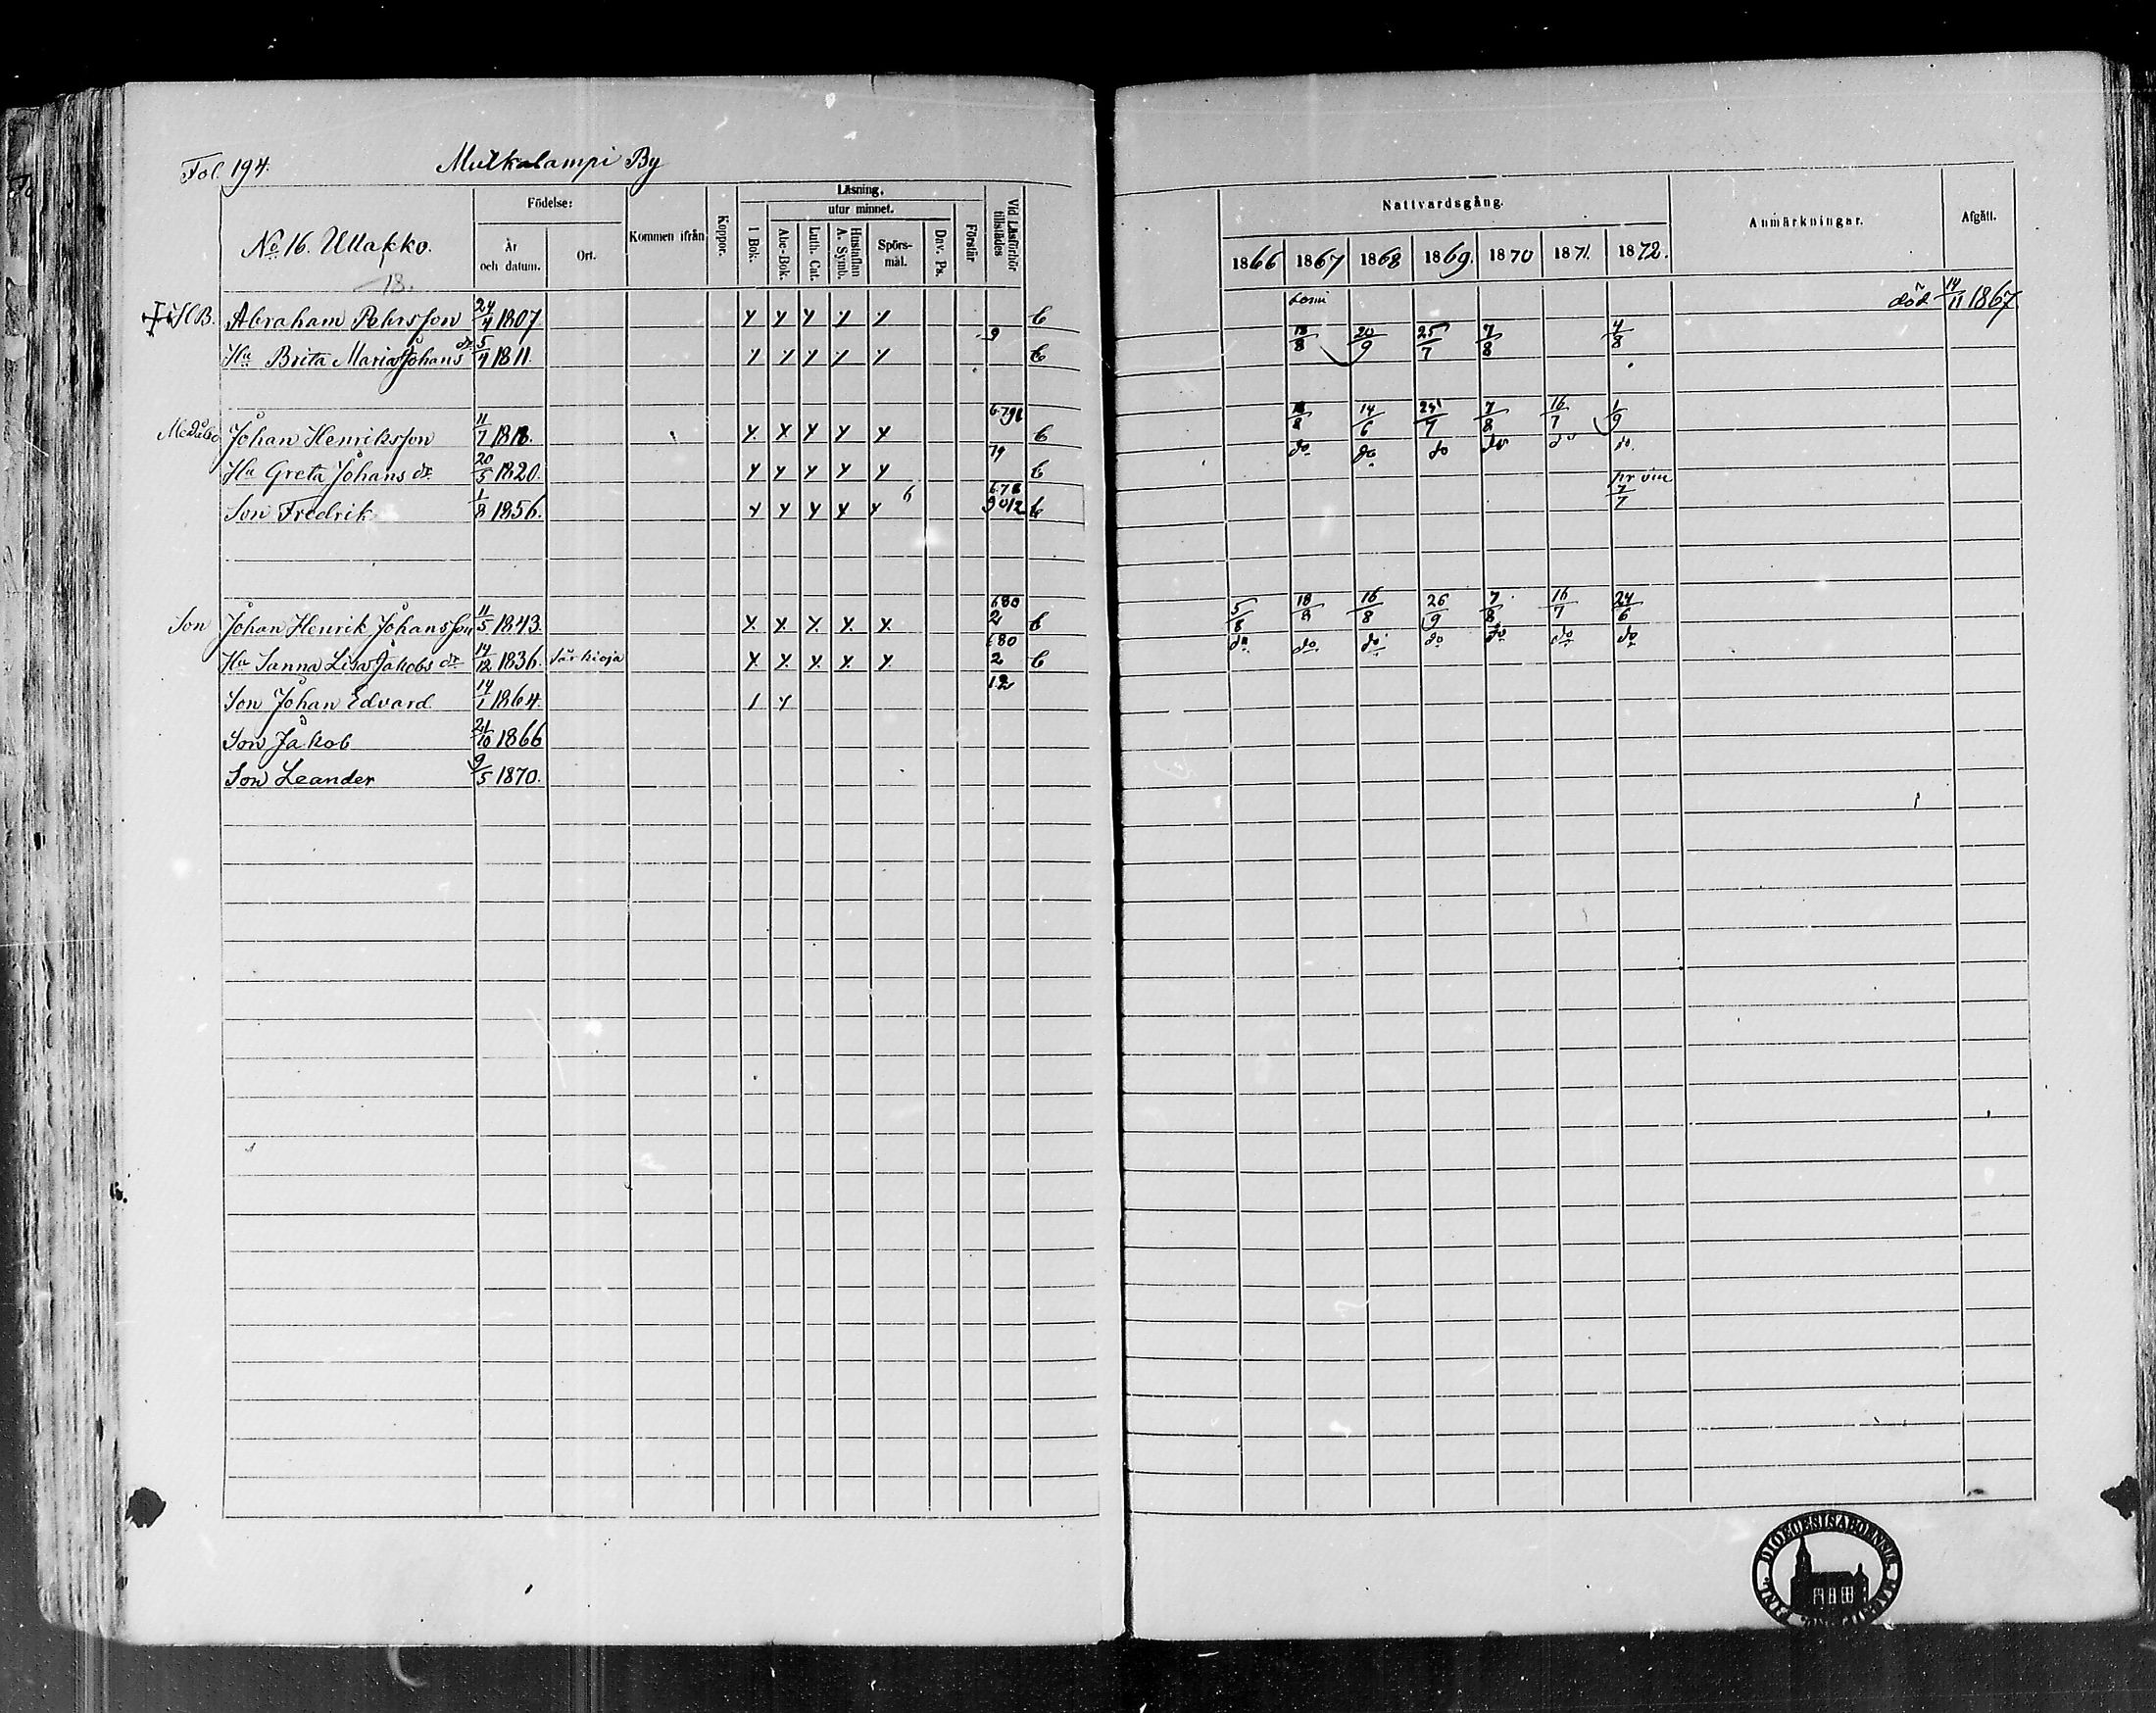 Fol. 194. Mutkalampi By
No 16. Ullakko.
18.
Födelse:
År och datum.
Ort.
Kommen ifrån
Koppor.
Läsning.
utur minnet.
I Bok.
Abc-Bok.
Luth. Cat.
Hustaflan A. Symb.
Spörsmål.
Dav. Ps.
Förstår
Vid Läsförhör tillstädes
Nattvardsgång.
1866 1867 1868 1869. 1870 1871. 1872.
Anmärkningar.
Afgått.
Abraham Pehrsson 24/4 1807 y y y y y b död 14/11 1867
Hu Brita Maria Johansdr 5/4 1811. 9 b 18/8 20/9 25/7 7/8 4/8
Johan Henriksson 11/7 1818. x x x x x b 18/8 14/6 24/7 7/8 16/7 1/9
Hu Greta Johans dr 20/5 1820. 79 y y y y y b do do do do do do
Son Fredrik 1/8 1856. y y y y y 6 7/7
Son Johan Henrik Johansson 11/5 1843. x x x x x 680 2 b 5/8 18/8 16/8 26/9 7/8 16/7 24/6
Hu Sanna Lisa Jakobs dr 14/12 1836. x x x x x 680 2 b do do do do do do do
Son Johan Edvard 14/1 1864. 1 y 12
Son Jakob 21/10 1866
Son Leander 9/5 1870.